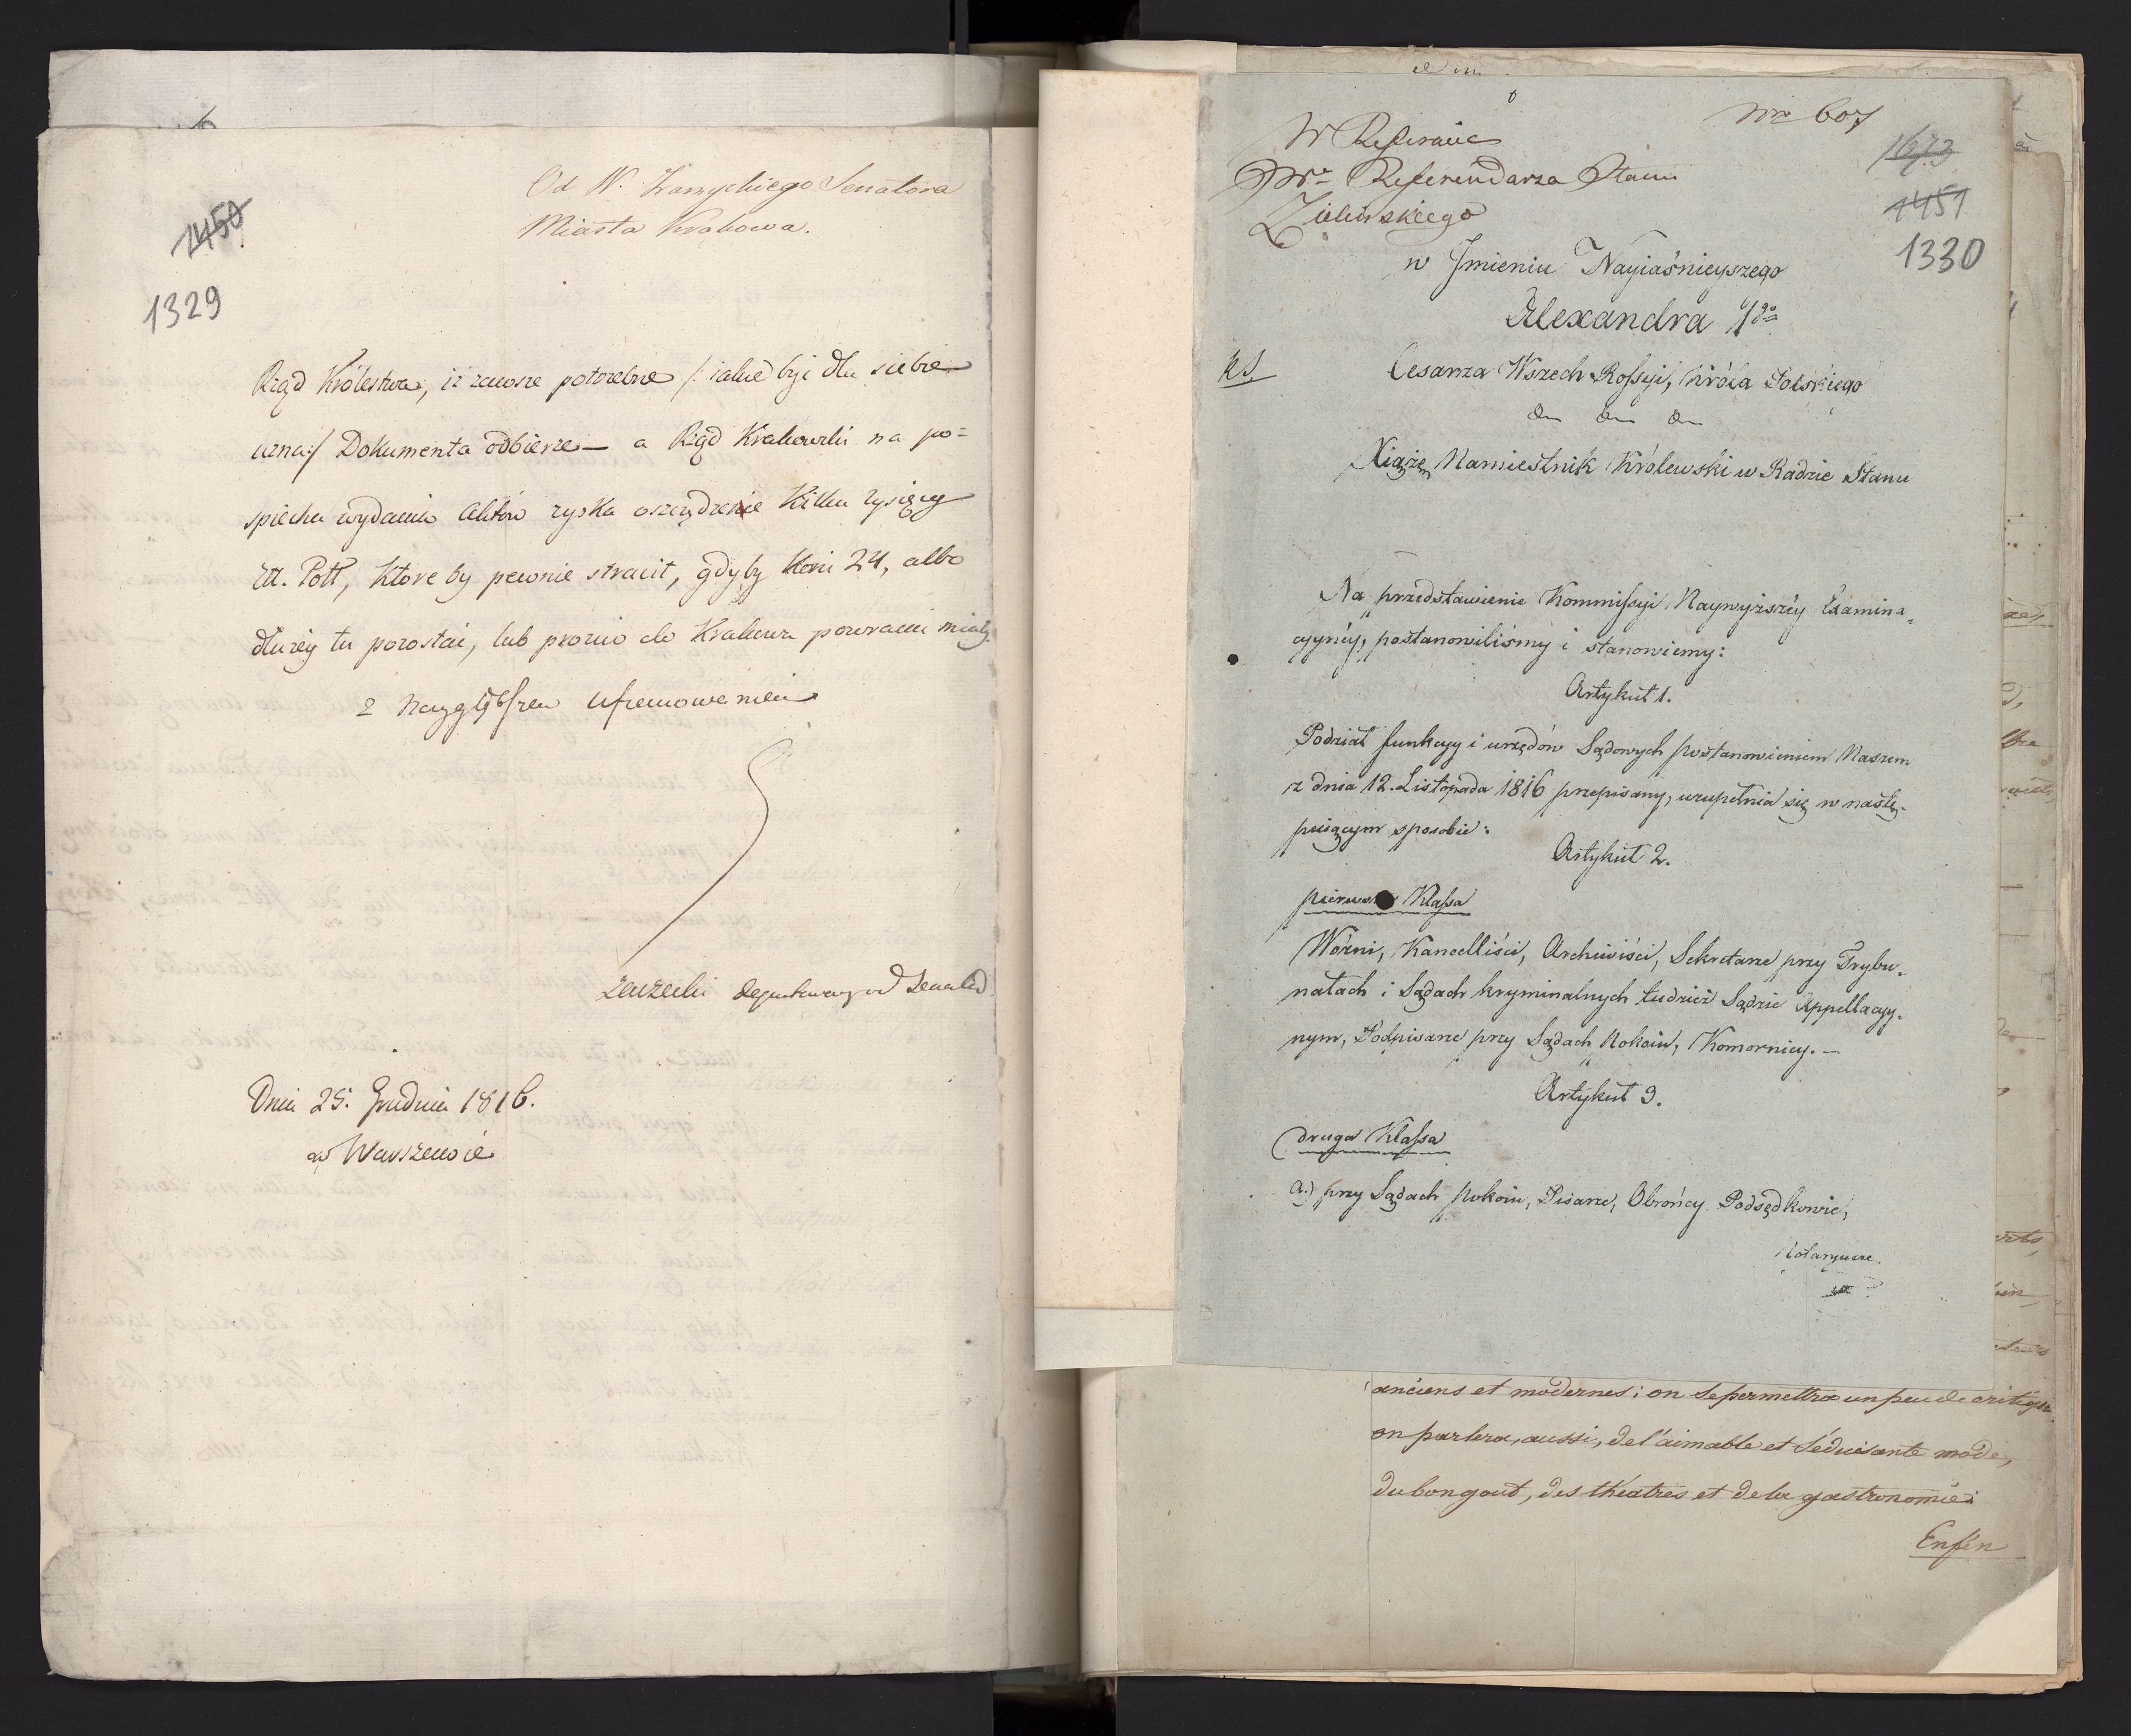 Od W. Zarzyckiego Senatora
Miasta Krakowa.
1450
1329
Rząd Królestwa, iż zawsze potrzebne /: iakie być dla siebie
uzna :/ Dokumenta odbierze — a Rząd Krakowski na po=
spiechu wydania Aktów zyska oszczędzenie Kilku tysięcy
Zł. Pol, które by pewnie stracił, gdyby Koni 24, albo
dłużey tu pozostać, lub prózno do Krakowa powracać miały.
z Nayglębszem Uszanowaniem
deputowany od Senatu
Dnia 25. Grudnia 1816.
w Warszawie
Nro 607
W Referencie
JWo Referendarza Stanu
Zielinskiego
1451
1330
w Jmieniu Nayiaśnieyszego
Alexandra 1go
Cesarza Wszech Rossyi, Króla Polskiego
KS.
Xiąże Namiestnik Królewski w Radzie Stanu
Na przedstawienie Kommissyi Naywyższéy Examina=
cyynéy, postanowiliśmy i stanowiemy:
Artykuł 1.
Podział funkcyy i urzędów Sądowych postanowieniem Naszem
z dnia 12. Listopada 1816 przepisany, uzupełnia się w nastę=
puiącym sposobie:
Artykuł 2.
pierwsza Klassa
Woźni, Kancelliści, Archiwiści, Sekretarze przy Trybu=
nałach i Sądach kryminalnych tudzież Sądzie Appellacyy=
nym, Podpisarze przy Sądach Pokoiu, Komornicy. —
Artykuł 3.
druga Klassa
a.) przy Sądach Pokoiu, Pisarze, Obrońcy Podsędkowie,
Notaryusze.
anciens et modernes; on se permettra un peu de critique
on parlera, aussi, de l'aimable et séduisante mode,
du bon gout, des théatres et de la gastronomie:
Enfin